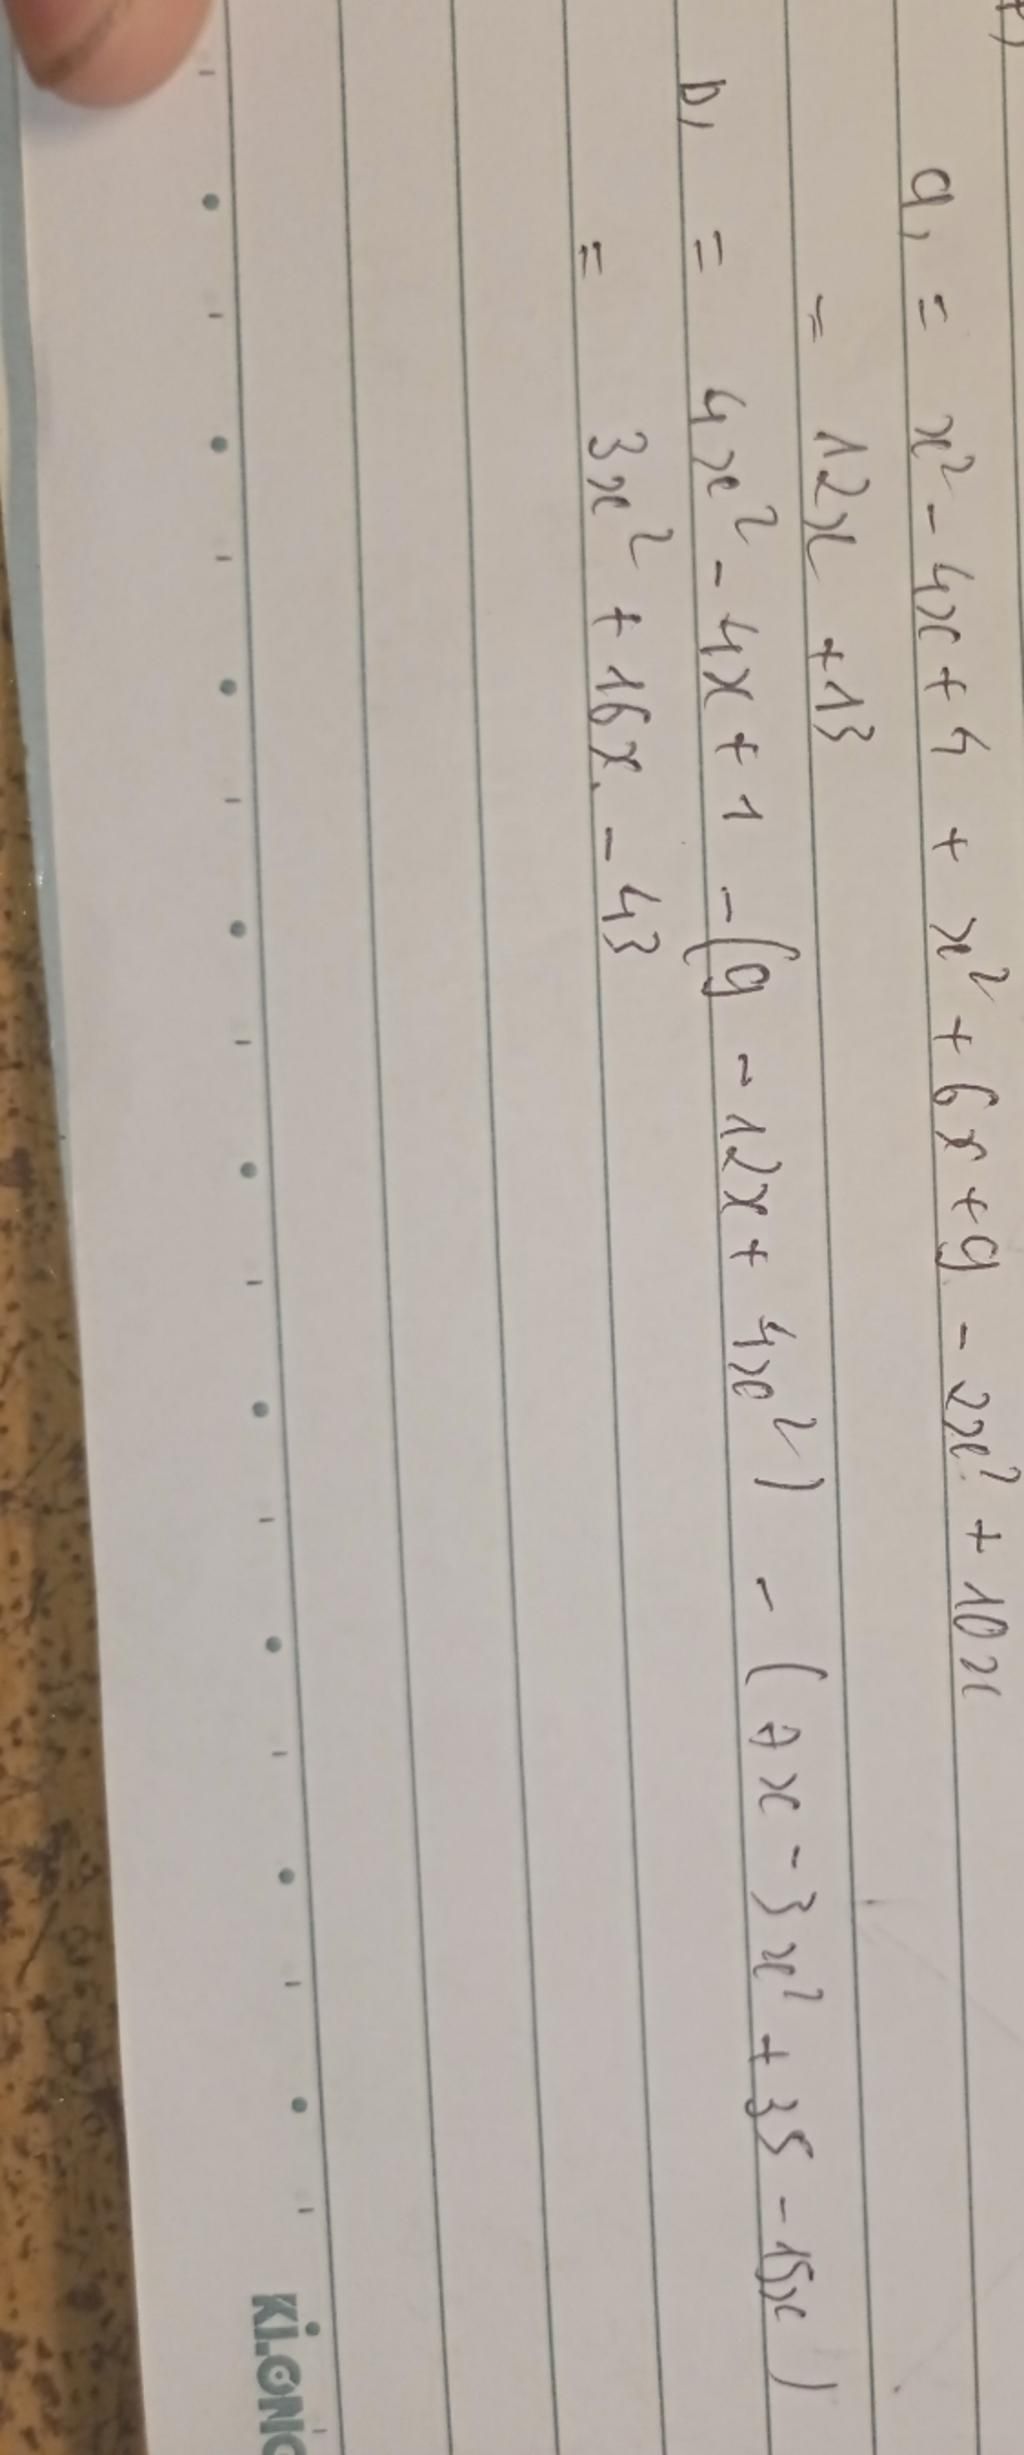 a, = x² - 4x + 4 + x² + 6x + 9 - 2x² + 10x
= 12x + 13
b, = 4x² - 4x + 1 - (9 - 12x + 4x²) - (7x - 3x² + 35 - 15x)
= 3x² + 16x - 43